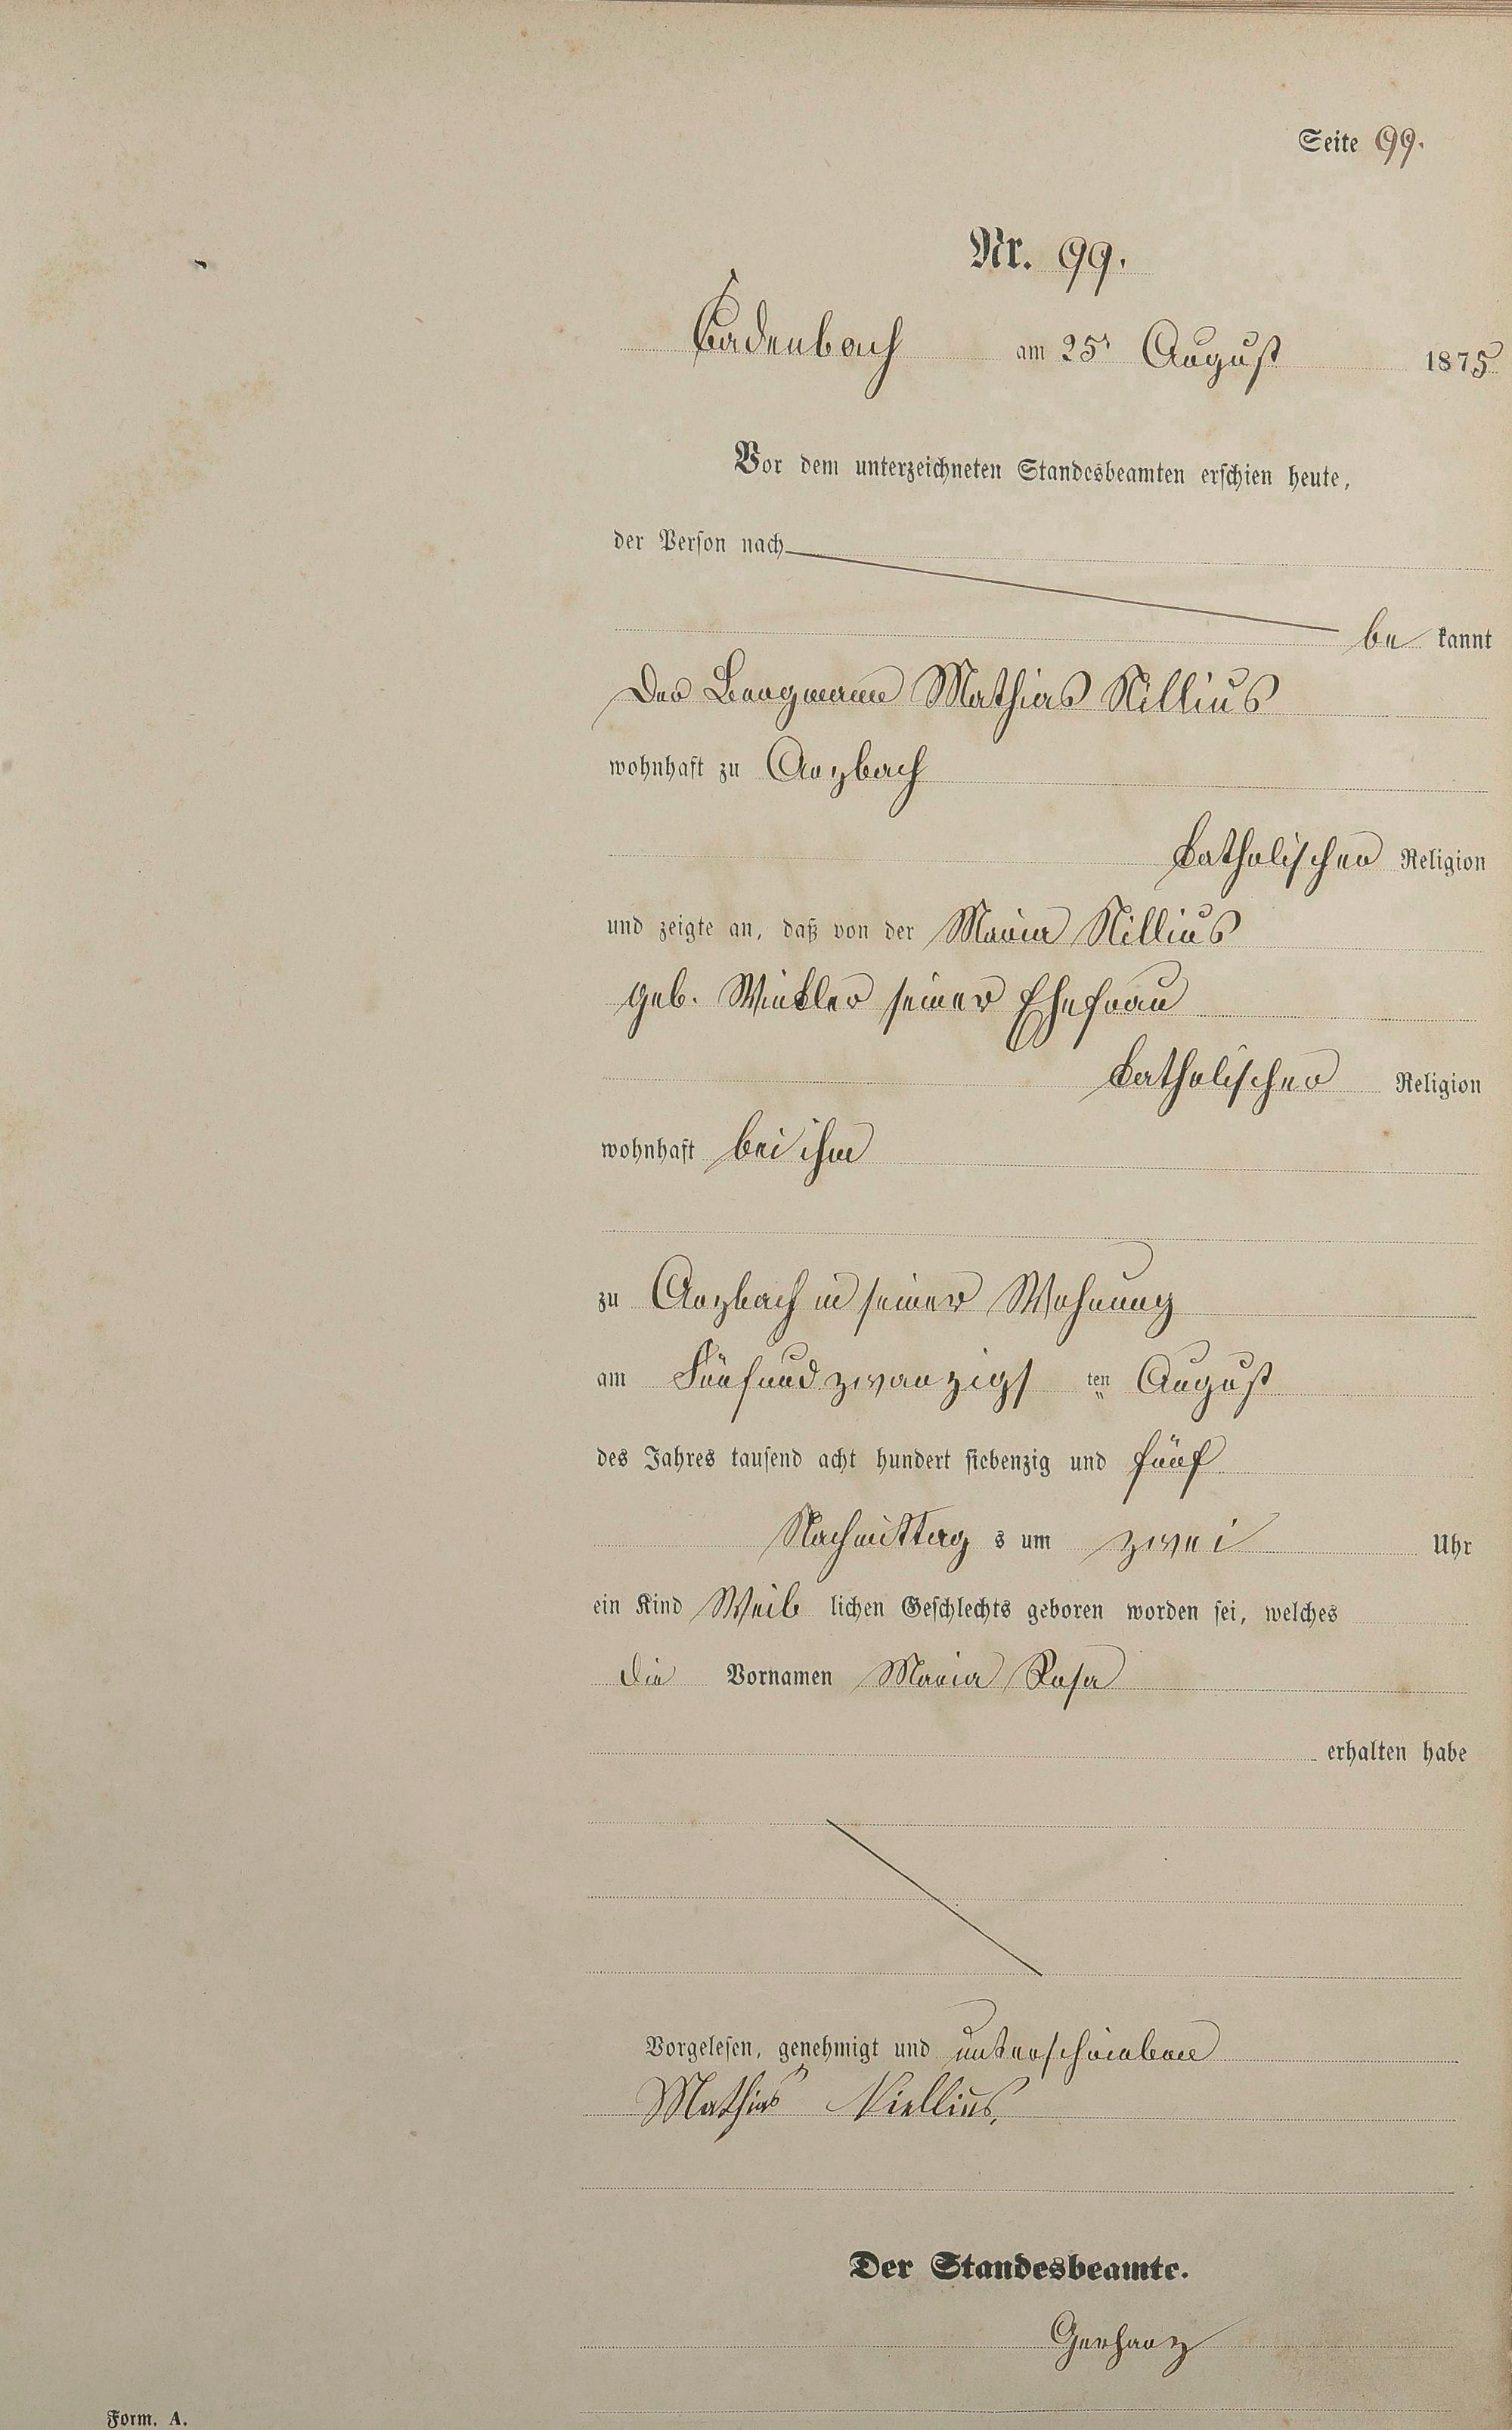 Seite 99.
Nr. 99.
Cadenbach am 25t August 1875
Vor dem unterzeichneten Standesbeamten erschien heute,
der Person nach
be kannt
Der Bergmann Mathias Nillius
wohnhaft zu Arzbach
katholischer Religion
und zeigte an, daß von der Maria Nillius
geb. Winkler seiner Ehefrau
katholischer Religion
wohnhaft bei ihm
zu Arzbach in seiner Wohnung
am Fünfundzwanzigs ten August
des Jahres tausend acht hundert siebenzig und fünf
Nachmittag s um zwei Uhr
ein Kind Weib lichen Geschlechts geboren worden sei, welches
die Vornamen Maria Rosa
erhalten habe
Vorgelesen, genehmigt und unterschrieben
Mathias Niellius.
Der Standesbeamte.
Gerharz
Form. A.